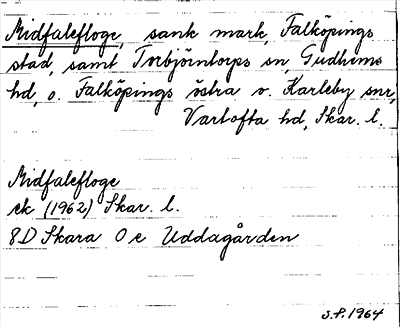 Midfalefloge, sank mark, Falköpings
stad, samt Torbjörntorps sn, Gudhems
hd, o. Falköpings östra o. Karleby snr,
Vartofta hd, Skar. l.
Midfalefloge
ek (1962) Skar. l.
8D Skara 0 e Uddagården
S.P. 1964